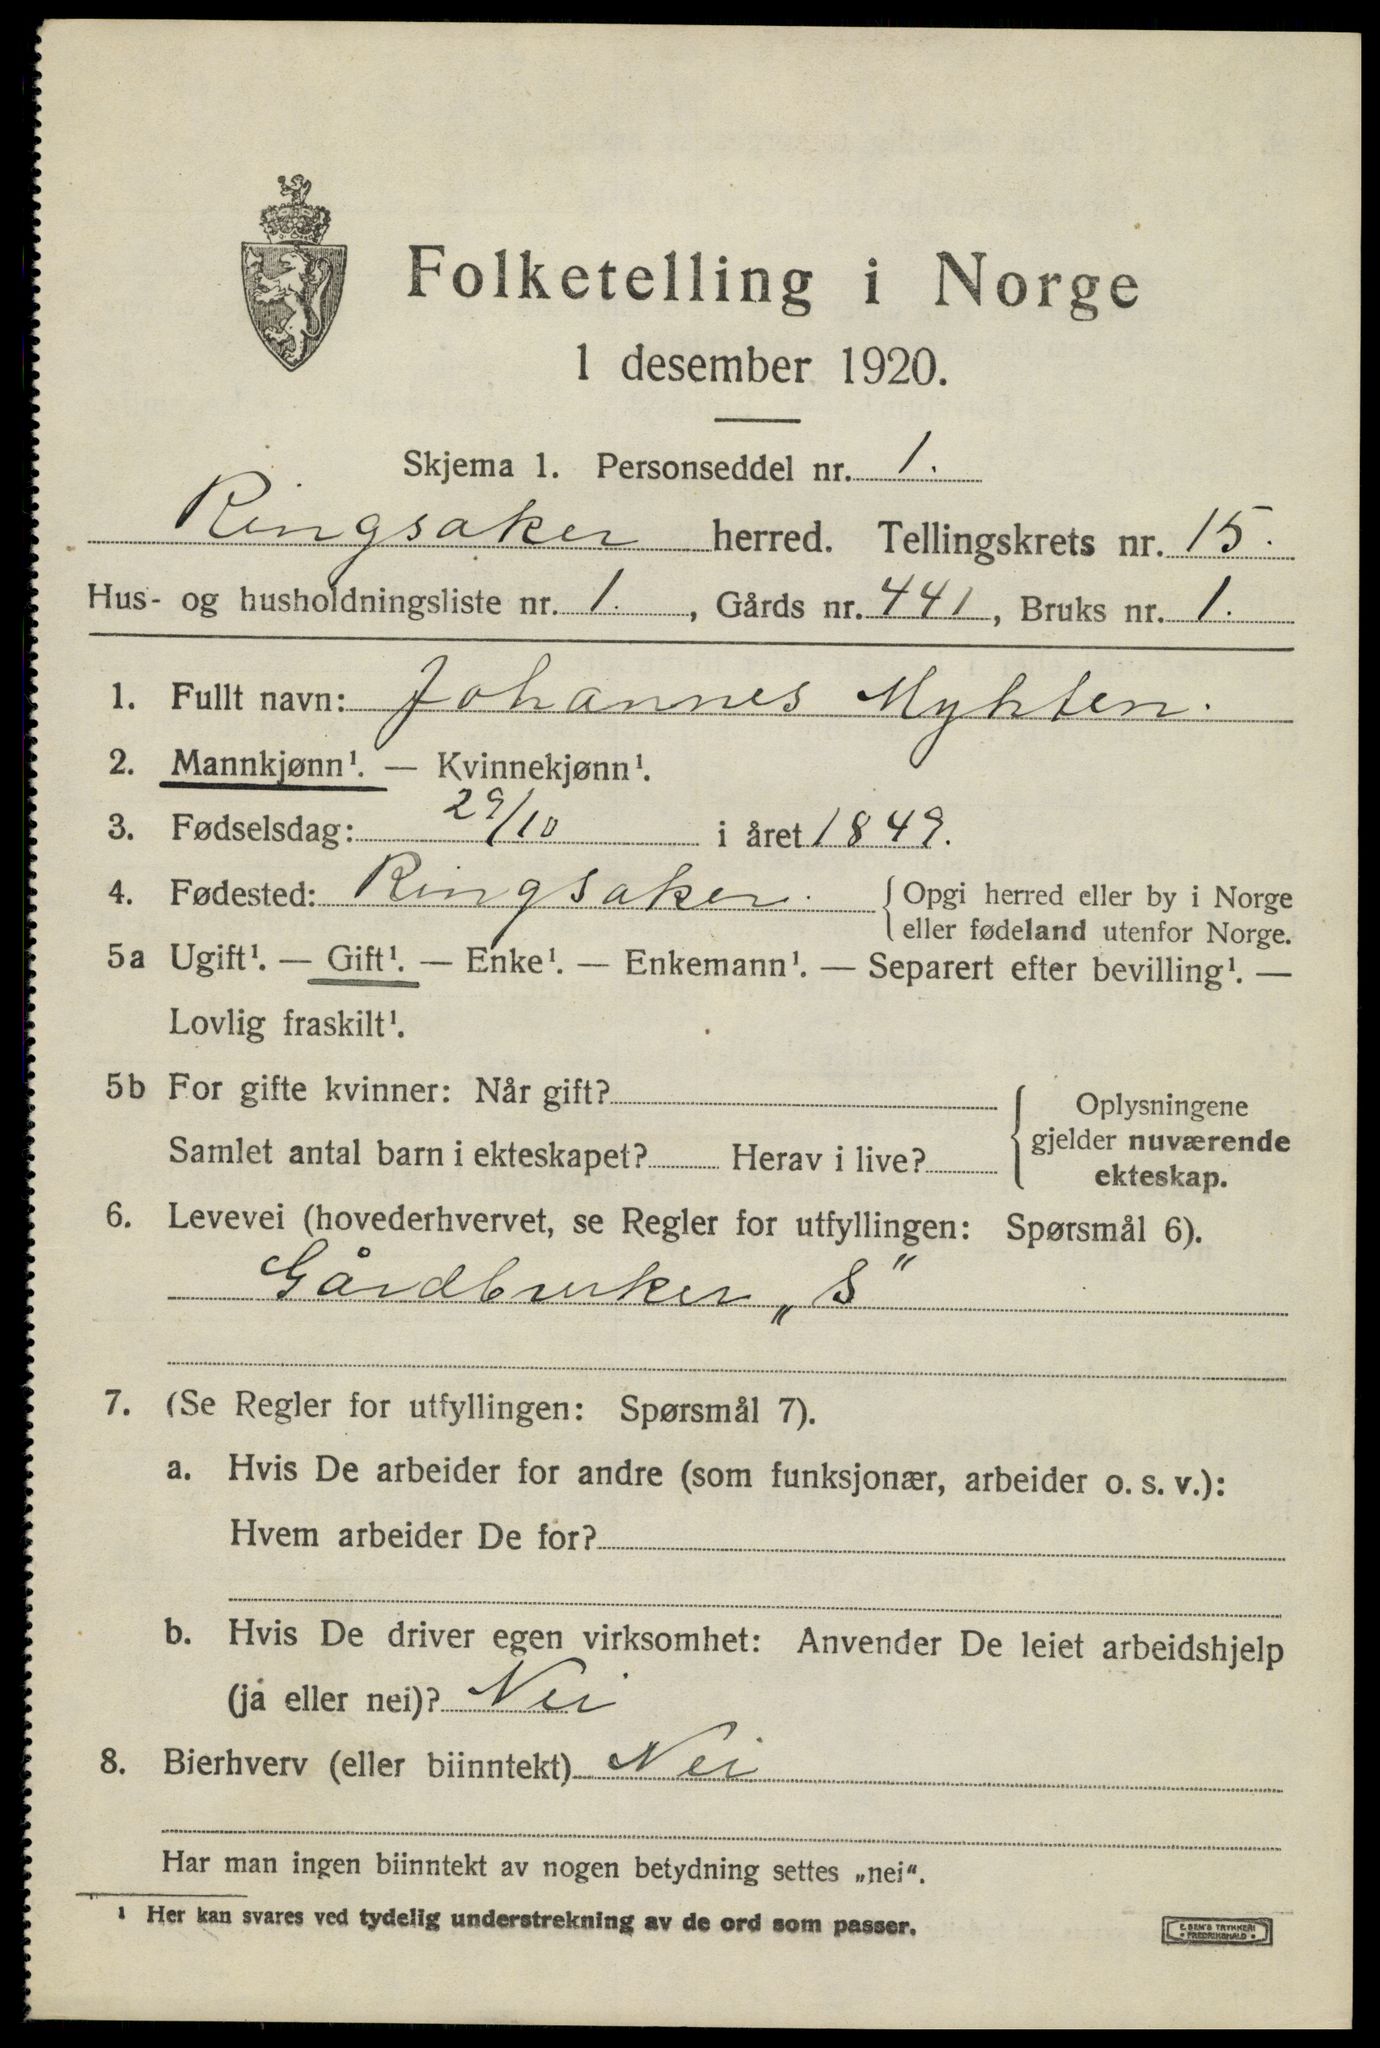 Folketelling i Norge
1 desember 1920.
Skjema 1. Personseddel nr. 1.
Ringsaker herred. Tellingskrets nr. 15.
Hus- og husholdningsliste nr. 1., Gårds nr. 441, Bruks nr. 1.
1. Fullt navn: Johannes Myhten.
2. Mannkjønn¹. — Kvinnekjønn¹.
3. Fødselsdag: 29/10 i året 1849.
4. Fødested: Ringsaker. { Opgi herred eller by i Norge
eller fødeland utenfor Norge.
5a Ugift¹. — Gift¹. — Enke¹. — Enkemann¹. — Separert efter bevilling¹. —
Lovlig fraskilt¹.
5b For gifte kvinner: Når gift?
Samlet antal barn i ekteskapet? Herav i live?
Oplysningene
gjelder nuværende
ekteskap.
6. Levevei (hovederhvervet, se Regler for utfyllingen: Spørsmål 6).
Gårdbruker „S"
7. (Se Regler for utfyllingen: Spørsmål 7).
a. Hvis De arbeider for andre (som funksjonær, arbeider o. s. v.):
Hvem arbeider De for?
b. Hvis De driver egen virksomhet: Anvender De leiet arbeidshjelp
(ja eller nei)? Nei
8. Bierhverv (eller biinntekt) Nei
Har man ingen biinntekt av nogen betydning settes „nei“.
¹ Her kan svares ved tydelig understrekning av de ord som passer.
E. SEM'S TRYKKERI
FREDRIKSHALD